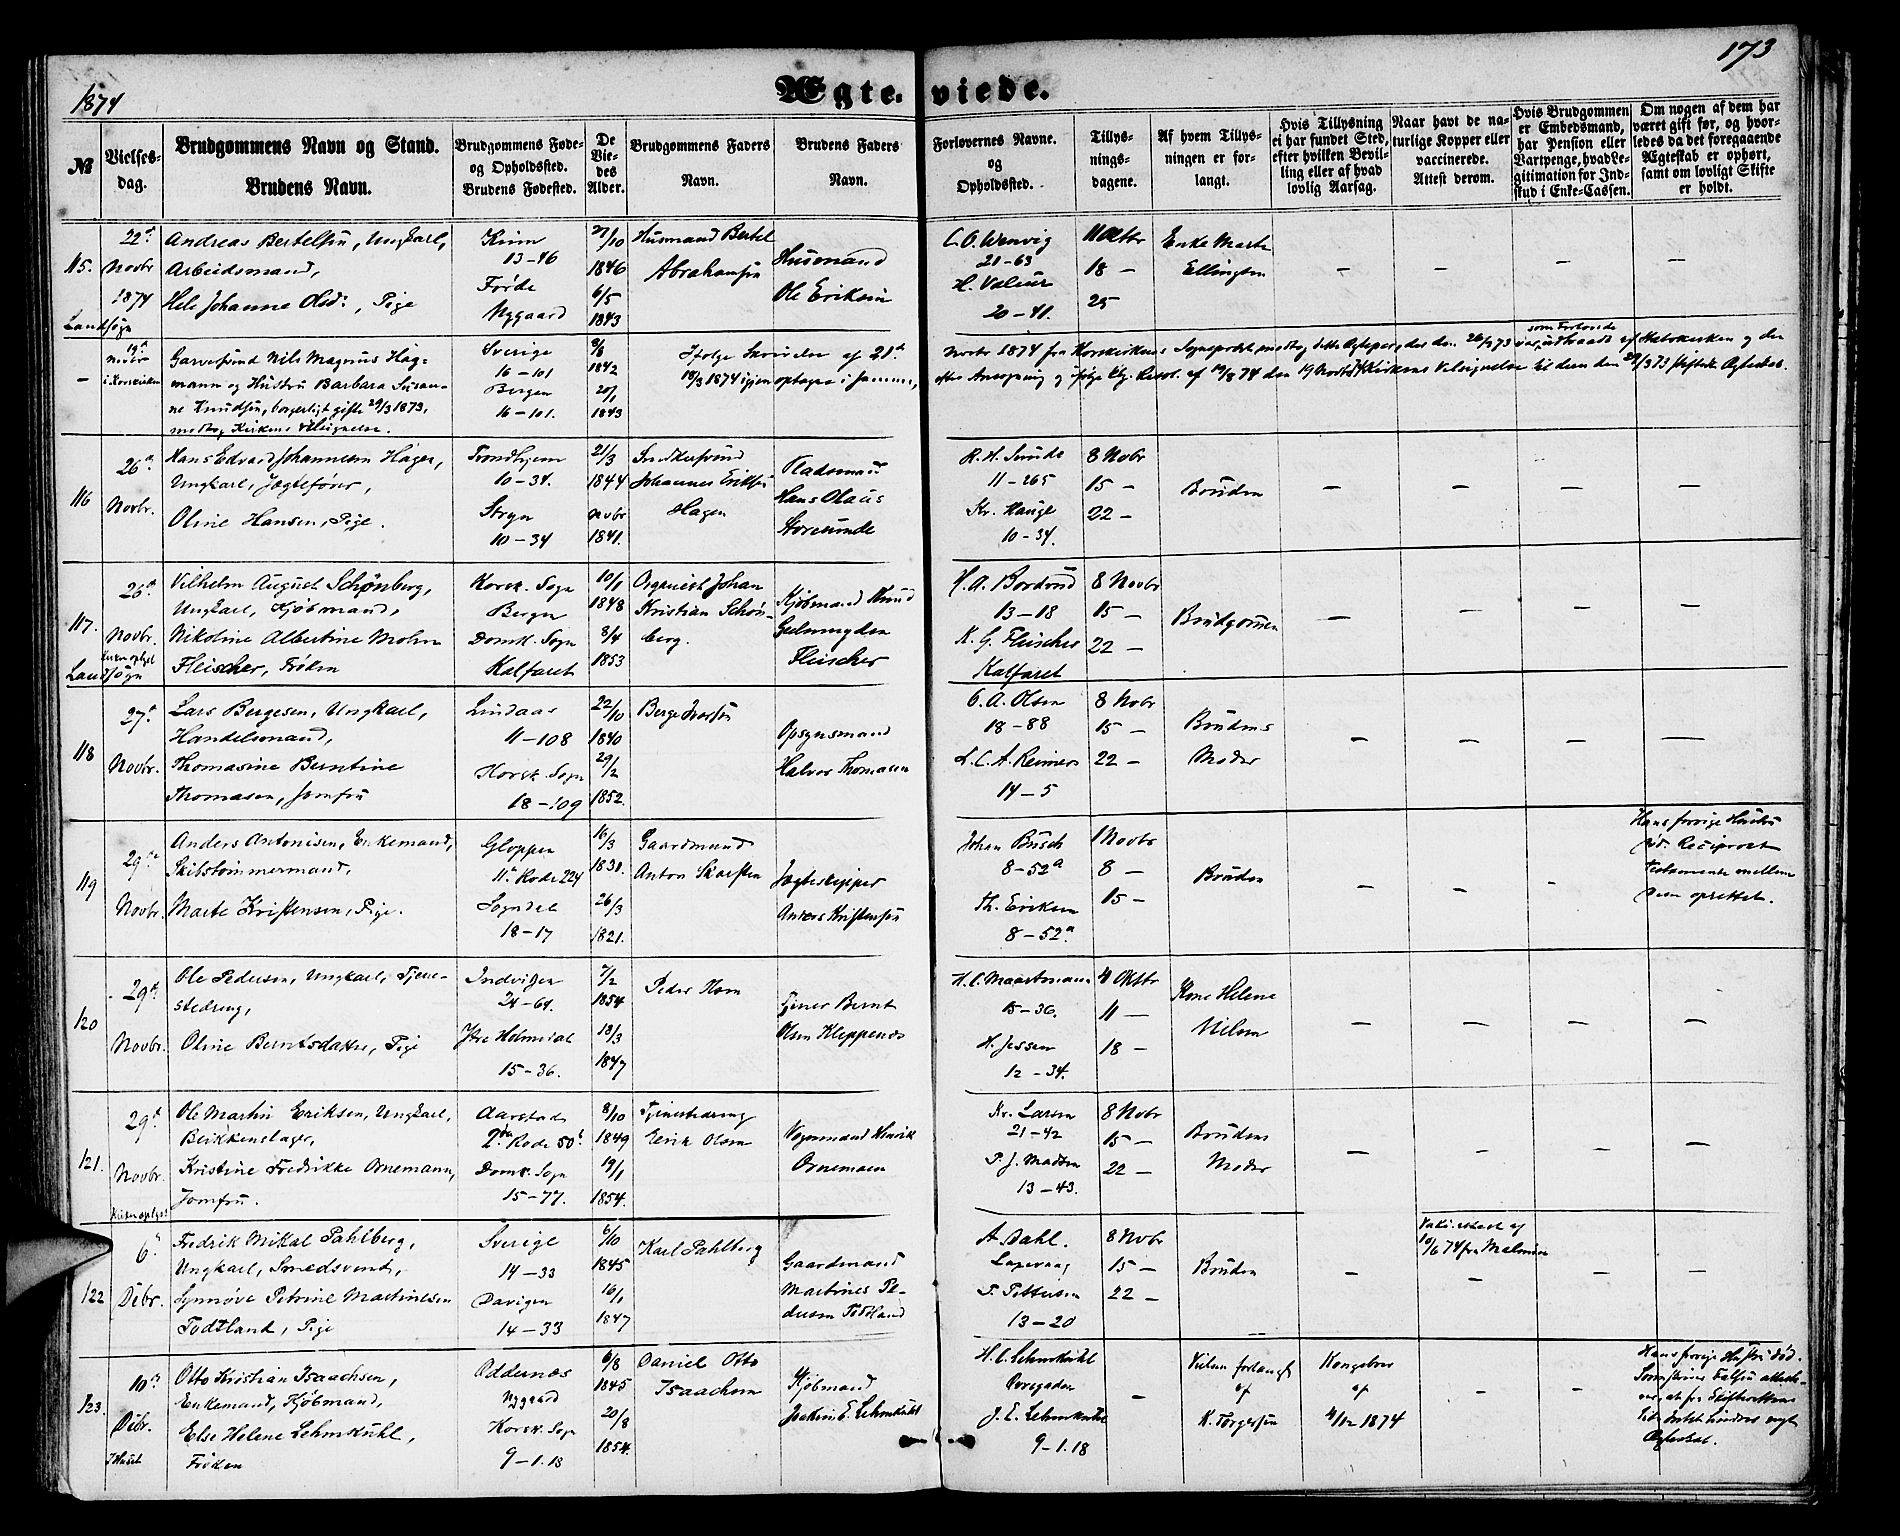 1874
173
Ægte-viede.
№
Vielses-
dag.
Brudgommens Navn og Stand.
Brudens Navn.
Brudgommens Føde-
og Opholdssted.
Brudens Fødested.
De
Vie-
des
Alder.
Brudgommens Faders
Navn.
Brudens Faders
Navn.
Forlovernes Navne.
og
Opholdssted.
Tillys-
nings-
dagene.
Af hvem Tillys-
ningen er for-
langt.
Hvis Tillysning
ei har fundet Sted,
efter hvilken Bevil-
ling eller af hvad
lovlig Aarsag.
Naar havt de na-
turlige Kopper eller
vaccinerede.
Attest derom.
Hvis Brudgommen
er Embedsmand,
har Pension eller
Vartpenge, hvad Le-
gitimation for Ind-
skud i Enke-Cassen.
Om nogen af dem har
været gift før, og hvor-
ledes da det foregaaende
Ægteskab er ophørt,
samt om lovligt Skifte
er holdt.
115.
22de
Novbr
1874
Landsogn
Andreas Bertelsen, Ungkarl,
Arbeidsmand,
Hele Johanne Olsd:, Pige
Kinn
13-46
Førde
Nygaard
27/10
1846
6/5
1843
Husmand Bertel
Abrahamsen
Husmand
Ole Eriksen
C. O. Wenvig
21-63
H. Valeur
20-41.
11 Octbr
18 -
25
Enke Marte
Ellingsen
-
19de
Novbr
i Korskirken
Garversvend Nils Magnus Hag-
mann og Hustru Barbara Susan-
ne Knudsen, borgerligt gifte 29/3 1873,
modtog Kirkens Velsignelse.
Sverige
16-101
Bergen
16-101.
8/8
1842
20/1
1843
Ifølge Skrivelse af 21de
18/3 1874 igjen optagne i samme,
Novbr 1874 fra Korskirkens Sogneprest, modtog dette Ægtepar, der den 26/1 73 var, som Forlovede, udtraadt af Statskirken og den
efter Ansøgning og ifølge Kg. Resol. af 19/8 74 den 19 Novbr 74 Kirkens Velsignelse til deres den 29/3 73 stiftede Ægteskab.
116
26de
Novbr.
Hans Edvard Johannesen Hagen,
Ungkarl, Jægtefører,
Oline Hansen, Pige.
Trondhjem
10-34.
Stryn
10-34
21/3
1844
Novbr
1841.
Snedkersvend
Johannes Eriksen
Hagen
Pladsmand
Hans Olaus
Storesunde
R. H. Sunde
11-265
Kr. Hauge
10-34.
8 Novbr
15 -
22 -
Bruden
117.
26de
Novbr.
Landsogn
Vilhelm August Schønberg,
Ungkarl, Kjøbmand,
Nikoline Albertine Mohn
Fleischer, Frøken
Korsk. Sogn
Bergen
Domk. Sogn
Kalfaret
10/1
1848
8/4
1853
Organist Johan
Kristian Schøn-
berg.
Kjøbmand Knud
Geelmuyden
Fleischer
H. A. Bordrud
13-18
K. G. Fleischer
Kalfaret
8 Novbr
15 -
22 -
Brudgommen
118
27de
Novbr.
Lars Bergesen, Ungkarl,
Handelsmand,
Thomasine Berntine
Thomasen, Jomfru
Lindaas
11-108
Korsk. Sogn
18-109
22/10
1840
29/2
1852.
Berge Ivarsen
Opsynsmand
Halvor Thomasen
O. A. Olsen
18-88
L. C. A. Reimers
14-5
8 Novbr
15 -
22 -
Brudens
Moder
119
29de
Novbr.
Anders Antonisen, Enkemand,
Skibstømmermand,
Marte Kristensen, Pige.
Gloppen
11te Rode 224
Sogndal
18-17
16/3
1831.
26/3
1821.
Gaardmand
Anton Skarsten
Jægteskipper
Anders Kristensen
Johan Busch
8-52a
Th. Eriksen
8-52a.
1 Novbr
8 -
15 -
Bruden
Hans forrige Hustru
død. Reciprokt
Testamente mellem
dem oprettet.
120
29de
Novbr.
Ole Pedersen, Ungkarl, Tjene-
stedreng,
Oline Berntsdatter, Pige
Indvigen
24-64.
Ytre Holmedal
15-36.
7/2
1854
18/3
1847
Peder Horn
Fjener Bernt
Olsen Kleppenes
H. C. Maartmann
15-36.
H. Jessen
12-34.
4 Oktbr
11 -
18 -
Kone Helene
Nielsen
121.
29de
Novbr.
Ole Martin Eriksen, Ungkarl,
Blikkenslager,
Kristine Fredrikke Ornemann,
Jomfru.
Aarstad
2den Rode 50b
Domk. Sogn
15-77.
8/10
1849
19/1
1854.
Tjenestedreng
Erik Olsen
Vognmand Henrik
Ornemann
Kr. Larsen
21-42
P. J. Madsen
13-43.
8 Novbr
15 -
22 -
Brudens
Moder
122
6te
Debr.
Fredrik Mikal Pahlberg,
Ungkarl, Smedsvend,
Synnøve Petrine Martinusen
Todtland, Pige
Sverige
14-33
Davigen
14-33
6/10
1845
16/1
1847
Karl Pahlberg
Gaardmand
Martinus Pe-
dersen Totland
A. Dahl.
Laxevaag
P. Pettersen
13-20
8 Novbr
15 -
22 -
Bruden
Vakc.attest af
10/6 74 fra Malmø
123.
10de
Debr.
I Huset
Otto Kristian Isaachsen,
Enkemand, Kjøbmand,
Else Helene Lehmkuhl,
Frøken
Oddernæs
Nygaard
Korsk. Sogn
9-1.18
6/8
1845
20/8
1854.
Daniel Otto
Isaachsen
Kjøbmand
Joakim E. Lehmkuhl
H. C. Lehmkuhl
Øvregaden
J. E. Lehmkuhl
9-1.18
-
Vielsen forlangt
af
K. Torgersen
Kongebrev
af
4/12 1874
Hans forrige Hustru død.